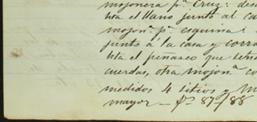 mojonera pª Cruz: des
ta el llano junto al ca
mojonª pª esquina:
junto á la casa y corra
ta el peñasco que
cuerdas, otra mojonª co
medidos 4 sitios y M
mayor — fs 87-/88